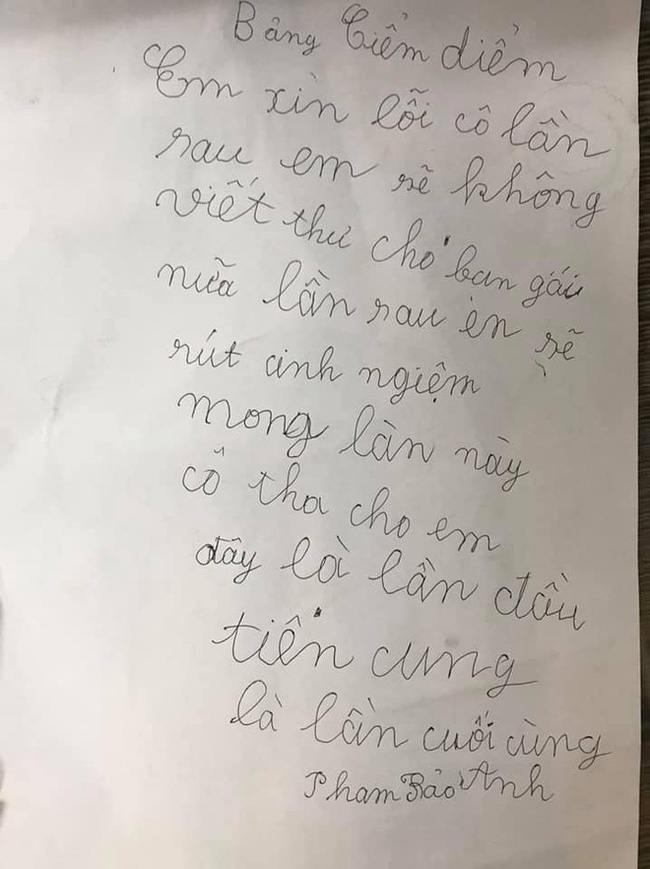 Bảng Ciểm diểm
Em xin lỗi cô lần
rau em rẽ không
viết thư cho bạn gái
nữa lần rau en rẽ
rút cinh ngiệm
mong làn này
cô tha cho em
đây là lần đầu
tiên cung
là lần cuối cùng
Phạm Bảo Anh